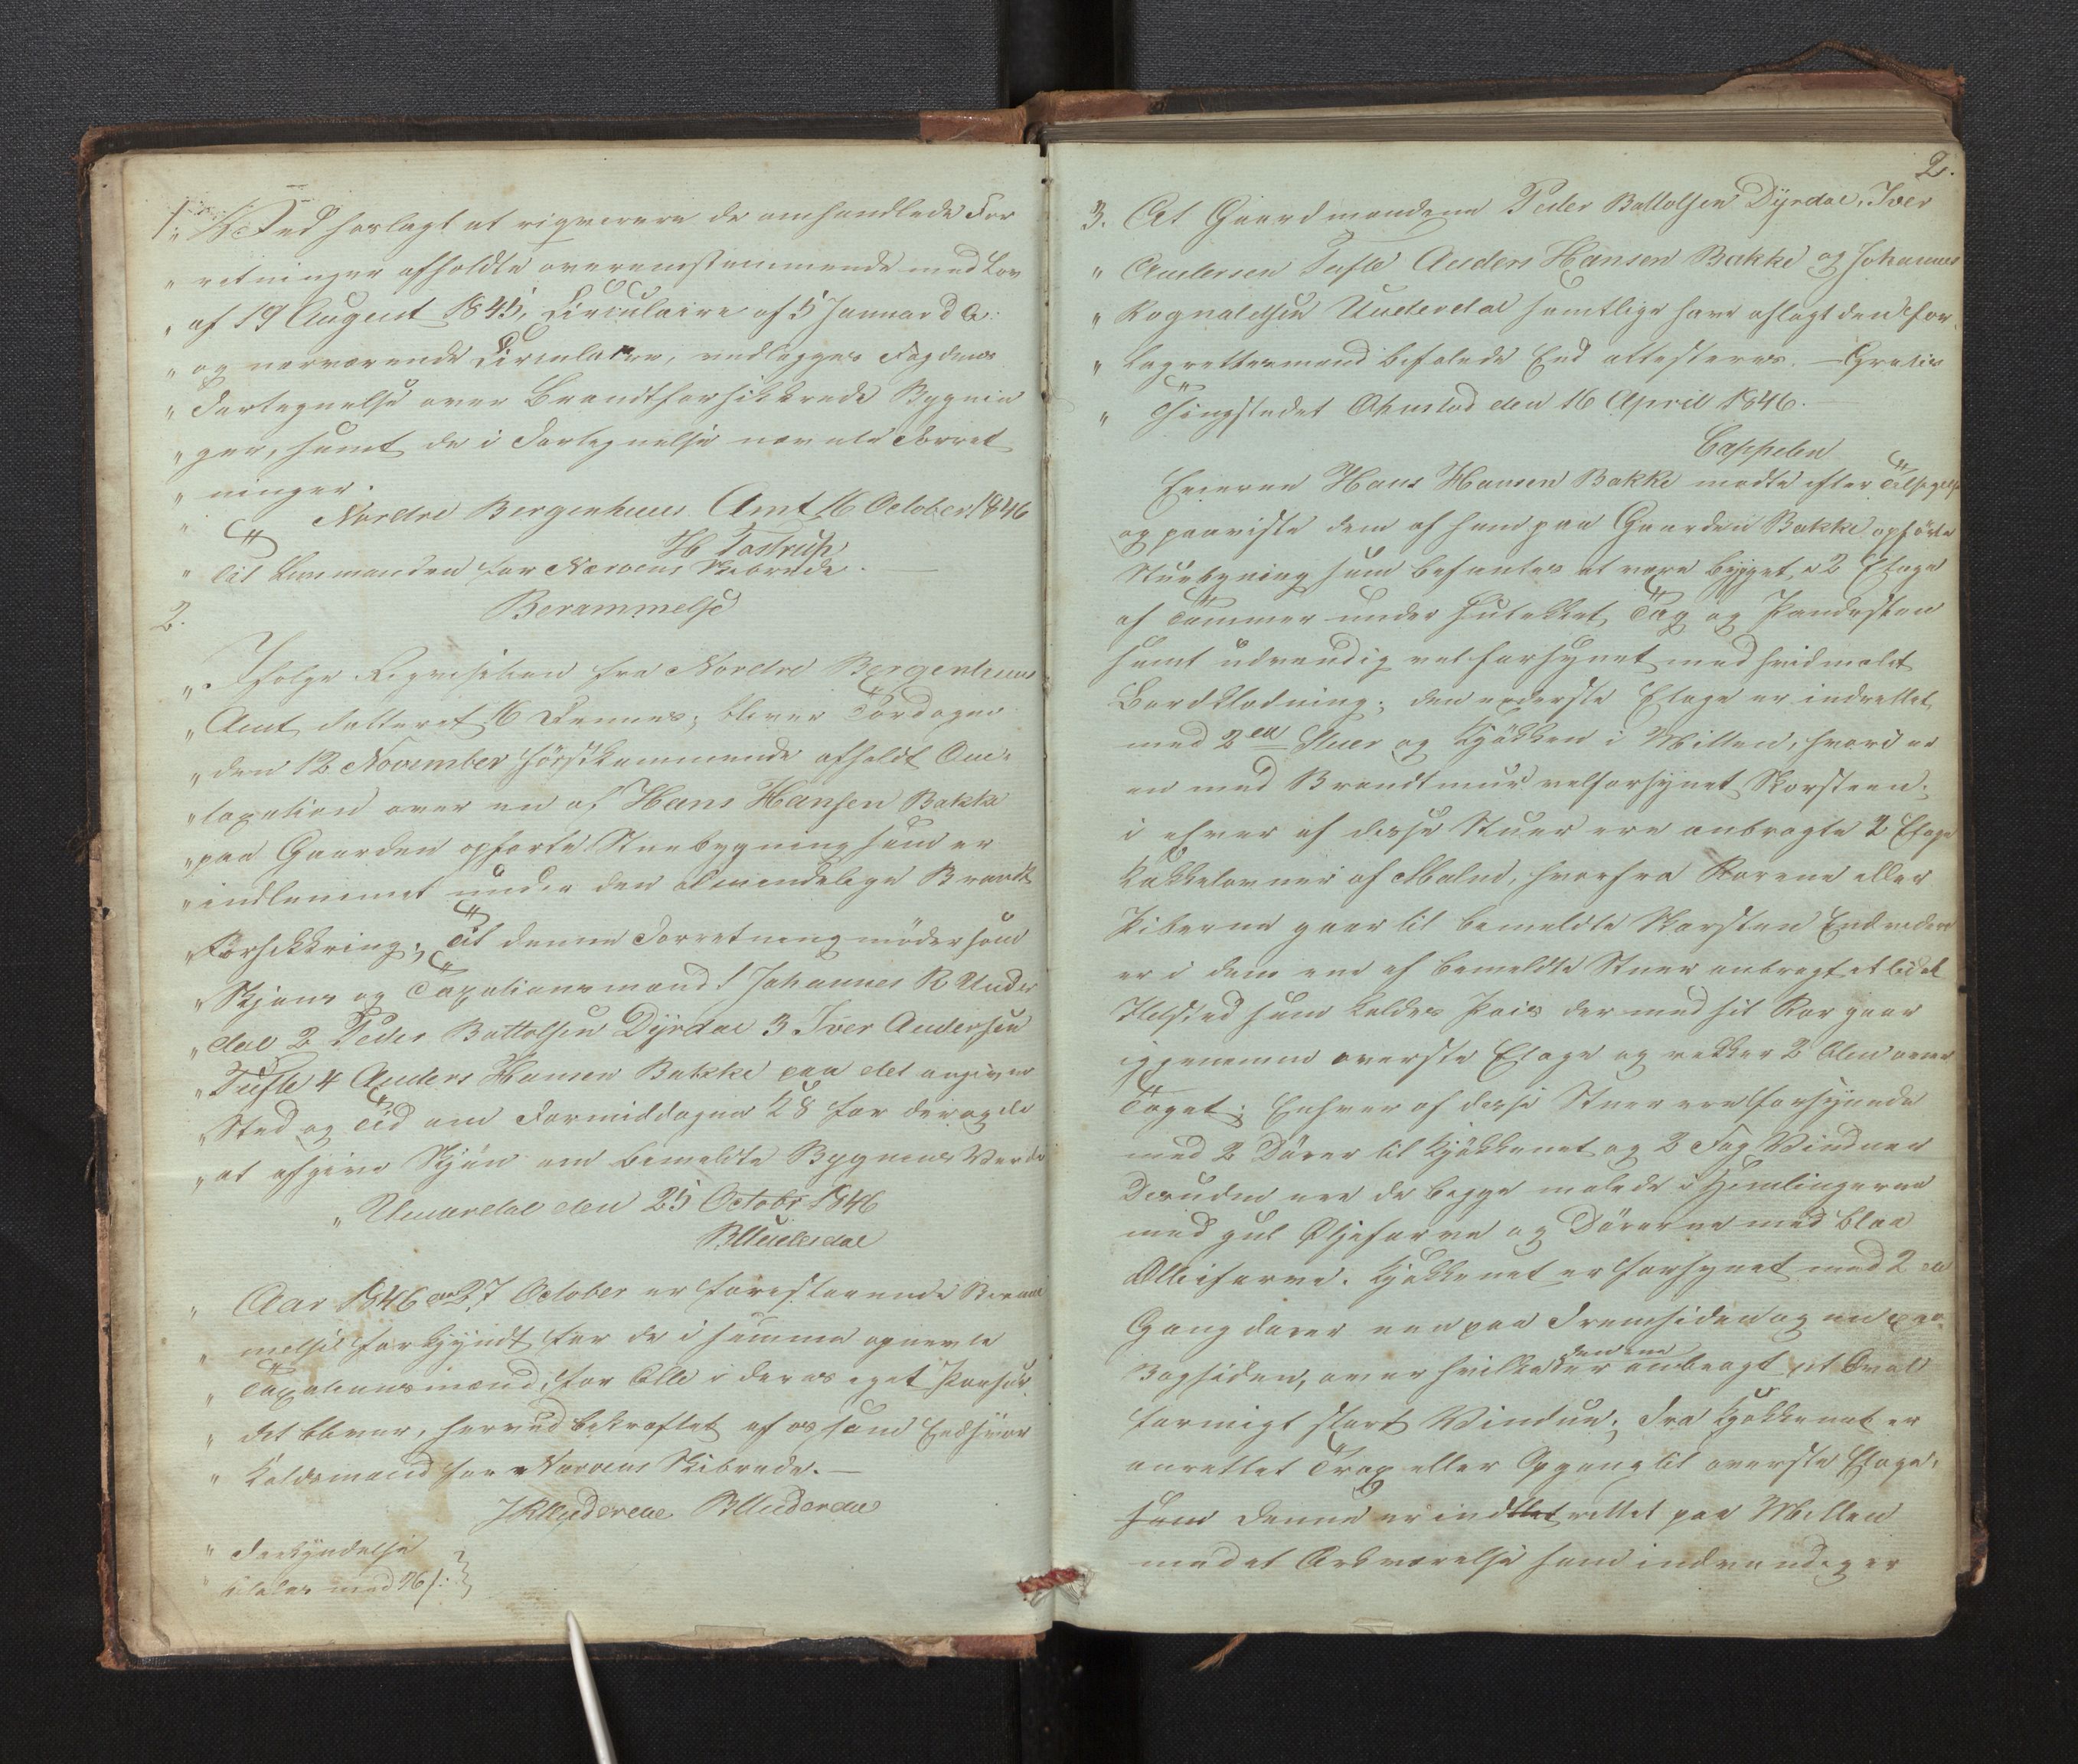 1. Ved Forlagt at reqvirere de omhandlede For
" retninger afholdte overeensstemmende med Lov
" af 19 August 1845, Circulaire af 5 Januar d. A:
" og nærværende Circulaire, vedlægges Fogdens
" Fortegnelse over Brandtforsikkrede Bygnin
" ger, samt de i Fortegnelse nævnte Forret
" ninger.
" Nordre Bergenhuus Amt 16 October 1846
H Tostrup
" Til Lensmanden for Næroens Skibrede.
2. Berammelse
" Ifølge Reqvisition fra Nordre Bergenhuus
" Amt datteret 16 Dennes, bliver Tordagen
" den 12 November førstkommende afholdt Om-
" taxation over en af Hans Hansen Bakke
" paa Gaarden opførte Stuebygning som er
" indlemmet under den almindelige Brandt
" Forsikkring; Til denne Forretning møder som
" Skjøns og Taxationsmænd 1 Johannes R Under
" dal 2 Peder Bottolfsen Dyrdal 3 Iver Andersen
" Tufte 4 Anders Hansen Bakke paa det angivne
" Sted og Tid om Formiddagen K 8 for der og da
" at afgive Skjøn om bemeldte Bygnings Værdie
" Underdal den 25 Octobr 1846
B Underdal
" Aar 1846 den 27 October er forestaaende Beram
" melse forkyndt for de i samme opnevnte
" Taxationsmænd, for Alle i deres eget Paahør
" det bliver, herved bekræftet af os som Eedsvor
" Kaldsmænd for Næroens Skibrede.
J R Underdal B Underdal
" Forkyndelse
" betales med 96 s:
2.
3. At Gaardmændene Peder Bottolfsen Dyrdal, Iver
" Andersen Tufte Anders Hansen Bakke og Johannes
" Rognaldsen Underdal samtlige have aflagt den for
" Lagrettesmænd befalede Eed attesteres. – Gratis
" Thingstedet Ohnstad den 16 April 1846.
Cappelen
Eieren Hans Hansen Bakke mødte efter Tilsigelse
og paaviste den af ham paa Gaarden Bakke opførte
Stuebygning som befantes at være bygget, a 2 Etage
af Tømmer under Tag og Pandesten
samt udvendig vel forsynet med hvidmalet
Bordklædning; den nederste Etage er indrettet
med 2 en Stuer og Kjøkken i Mitten, hvori er
en med Brandtmuur velforsynet Skorsteen;
i ehver af disse Stuer ere anbragte 2 Etage
Kakkelovner af Malm, hvorfra Rørene eller
Piberne gaar til bemeldte Skorsten Endvidere
er i den ene af bemeldte Stuer anbragt et lidet
Ildsted som kaldes Peis der med sit Rør gaar
igjenem øverste Etage og rekker 2 Alen over
Taget; Enhver af disse Stuer ere forsynede
med 2 Dører til Kjøkkenet og 2 Fag Vinduer
Desuden ere de begge malede i Himlingerne
med gul Oljefarve og Dørerne med blaa
Olliefarve. Kjøkkenet er forsynet med 2 en
Gang dører een paa Fremsiden og en paa
Bagsiden, over hvilken den ene er anbragt et Oval
formigt stort Vindue; Fra Kjøkkenet er
anrettet Trap eller Opgang til øverste Etage,
som denne er indttet rettet paa Mitten
med et Arkværelse som indvendig er